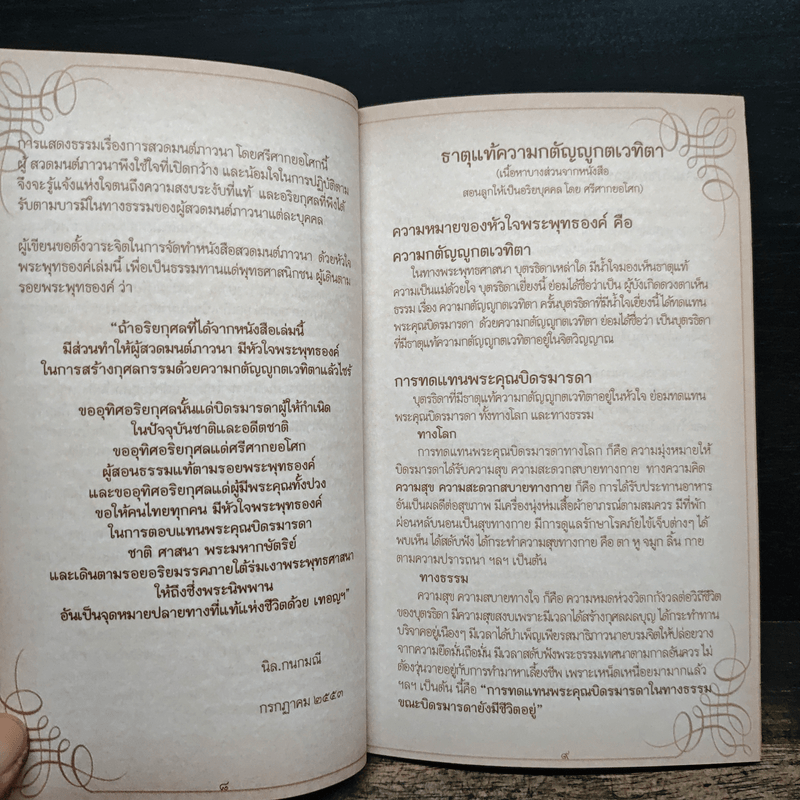 การแสดงธรรมเรื่องการสวดมนต์ภาวนา โดยศรีศากยอโศกนี้
ผู้ สวดมนต์ภาวนาพึงใช้ใจที่เปิดกว้าง และน้อมใจในการปฏิบัติตาม
จึงจะรู้แจ้งแห่งใจตนถึงความสงบระงับที่แท้ และอริยกุศลที่พึงได้
รับตามบารมีในทางธรรมของผู้สวดมนต์ภาวนาแต่ละบุคคล
ผู้เขียนขอตั้งวาระจิตในการจัดทำหนังสือสวดมนต์ภาวนา ด้วยหัวใจ
พระพุทธองค์เล่มนี้ เพื่อเป็นธรรมทานแด่พุทธศาสนิกชน ผู้เดินตาม
รอยพระพุทธองค์ ว่า
“ถ้าอริยกุศลที่ได้จากหนังสือเล่มนี้
มีส่วนทำให้ผู้สวดมนต์ภาวนา มีหัวใจพระพุทธองค์
ในการสร้างกุศลกรรมด้วยความกตัญญูกตเวทิตาแล้วไซร้
ขออุทิศอริยกุศลนั้นแด่บิดรมารดาผู้ให้กำเนิด
ในปัจจุบันชาติและอดีตชาติ
ขออุทิศอริยกุศลแด่ศรีศากยอโศก
ผู้สอนธรรมแท้ตามรอยพระพุทธองค์
และขออุทิศอริยกุศลแด่ผู้มีพระคุณทั้งปวง
ขอให้คนไทยทุกคน มีหัวใจพระพุทธองค์
ในการตอบแทนพระคุณบิดรมารดา
ชาติ ศาสนา พระมหากษัตริย์
และเดินตามรอยอริยมรรคภายใต้ร่มเงาพระพุทธศาสนา
ให้ถึงซึ่งพระนิพพาน
อันเป็นจุดหมายปลายทางที่แท้แห่งชีวิตด้วย เทอญฯ”
นิล.กนกมณี
กรกฎาคม ๒๕๕๓
๘
ธาตุแท้ความกตัญญูกตเวทิตา
(เนื้อหาบางส่วนจากหนังสือ
สอนลูกให้เป็นอริยบุคคล โดย ศรีศากยอโศก)
ความหมายของหัวใจพระพุทธองค์ คือ
ความกตัญญูกตเวทิตา
ในทางพระพุทธศาสนา บุตรธิดาเหล่าใด มีน้ำใจมองเห็นธาตุแท้
ความเป็นแม่ด้วยใจ บุตรธิดาเยี่ยงนี้ ย่อมได้ชื่อว่าเป็น ผู้บังเกิดดวงตาเห็น
ธรรม เรื่อง ความกตัญญูกตเวทิตา ครั้นบุตรธิดาที่มีน้ำใจเยี่ยงนี้ ได้ทดแทน
พระคุณบิดรมารดา ด้วยความกตัญญูกตเวทิตา ย่อมได้ชื่อว่า เป็นบุตรธิดา
ที่มีธาตุแท้ความกตัญญูกตเวทิตาอยู่ในจิตวิญญาณ
การทดแทนพระคุณบิดรมารดา
บุตรธิดาที่มีธาตุแท้ความกตัญญูกตเวทิตาอยู่ในหัวใจ ย่อมทดแทน
พระคุณบิดรมารดา ทั้งทางโลก และทางธรรม
ทางโลก
การทดแทนพระคุณบิดรมารดาทางโลก ก็คือ ความมุ่งหมายให้
บิดรมารดาได้รับความสุข ความสะดวกสบายทางกาย ทางความคิด
ความสุข ความสะดวกสบายทางกาย ก็คือ การได้รับประทานอาหาร
อันเป็นผลดีต่อสุขภาพ มีเครื่องนุ่งห่มเสื้อผ้าอาภรณ์ตามสมควร มีที่พัก
ผ่อนหลับนอนเป็นสุขทางกาย มีการดูแลรักษาโรคภัยไข้เจ็บต่างๆ ได้
พบเห็น ได้สดับฟัง ได้กระทำความสุขทางกาย คือ ตา หู จมูก ลิ้น กาย
ตามความปรารถนา ฯลฯ เป็นต้น
ทางธรรม
ความสุข ความสบายทางใจ ก็คือ ความหมดห่วงวิตกกังวลต่อวิถีชีวิต
ของบุตรธิดา มีความสุขสงบเพราะมีเวลาได้สร้างกุศลผลบุญ ได้กระทำทาน
บริจาคอยู่เนืองๆ มีเวลาได้บำเพ็ญเพียรสมาธิภาวนาอบรมจิตให้ปล่อยวาง
จากความยึดมั่นถือมั่น มีเวลาสดับฟังพระธรรมเทศนาตามกาลอันควร ไม่
ต้องวุ่นวายอยู่กับการทำมาหาเลี้ยงชีพ เพราะเหน็ดเหนื่อยมามากแล้ว
ฯลฯ เป็นต้น นี้คือ “การทดแทนพระคุณบิดรมารดาในทางธรรม
ขณะบิดรมารดายังมีชีวิตอยู่”
๙